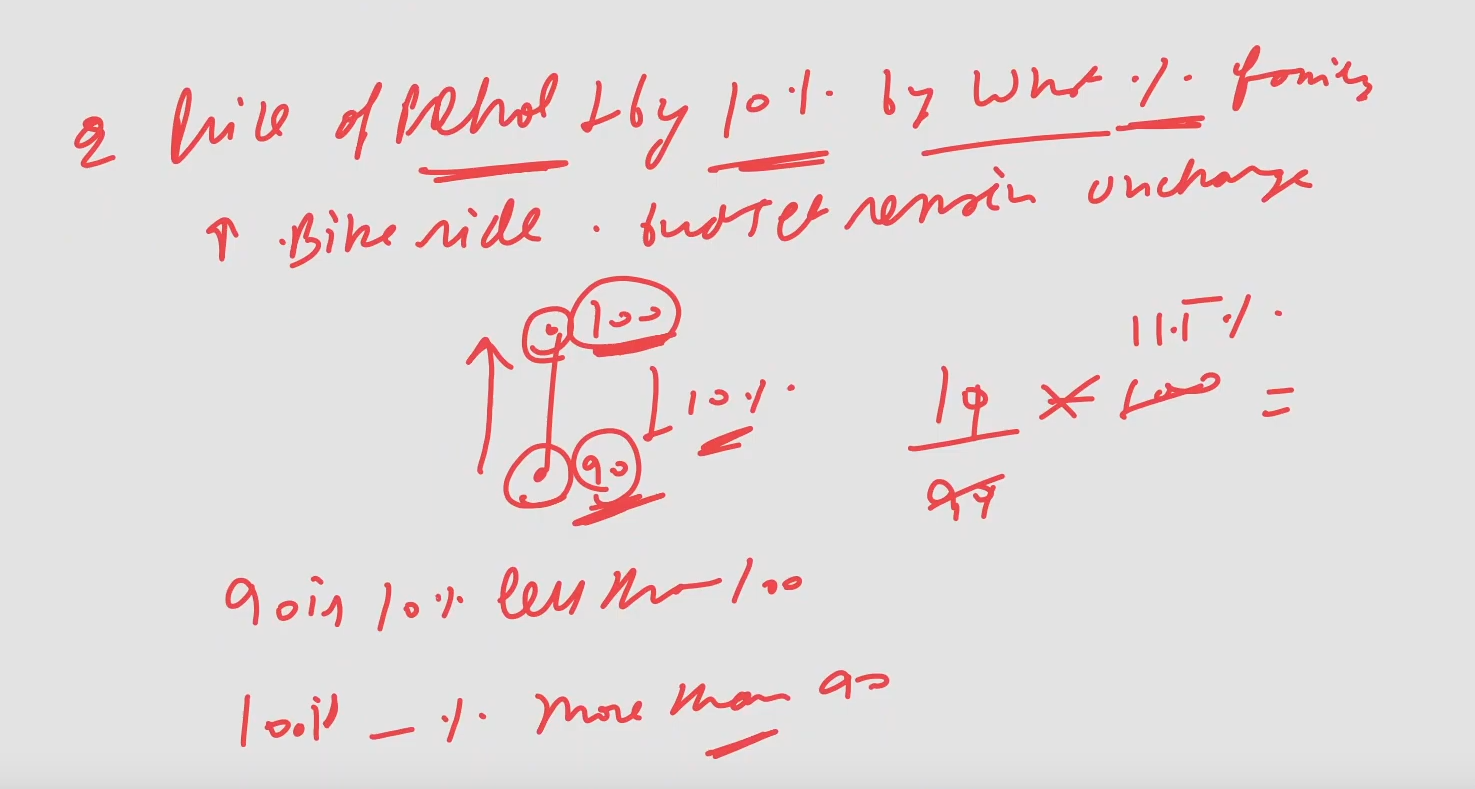 Q Price of Petrol ↓ by 10% by what %
↑ Bike ride . budget remain unchange
100
11.1̅%.
↓ 10%.
10 × 100 =
90
90
90 is 10% less than 100
100 is _ %. more than 90